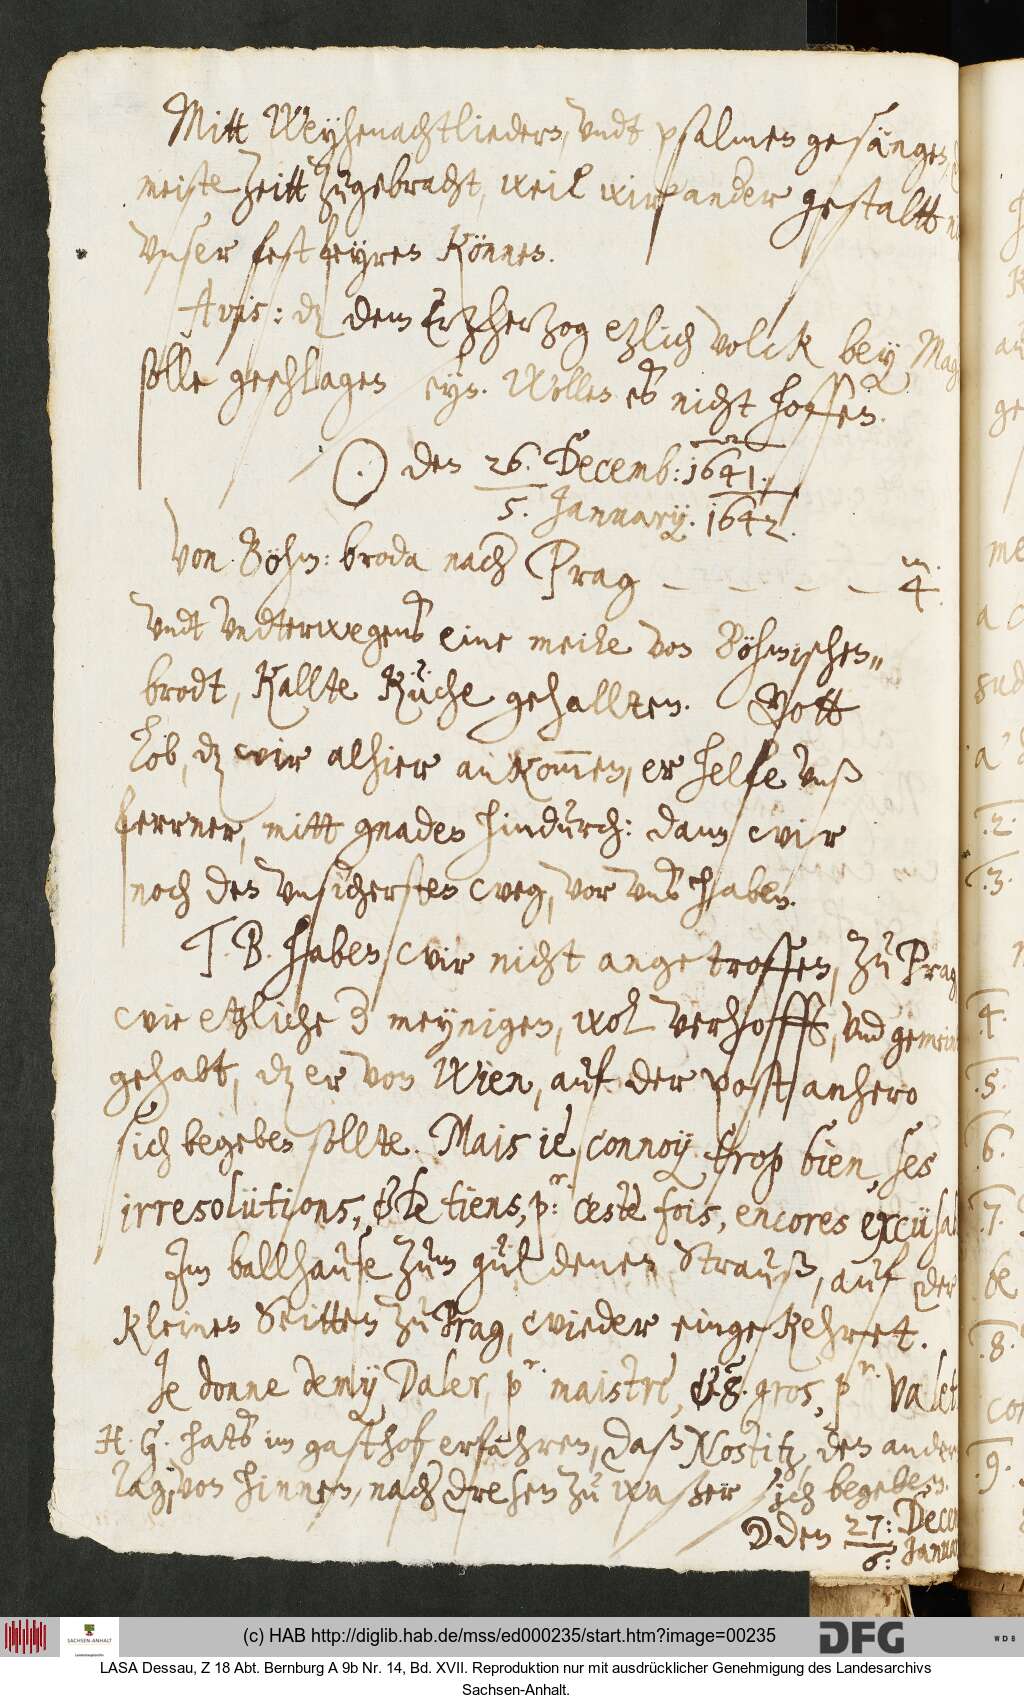 Mitt Weyhenachtliedern, undt psalmen gesängen,
meiste zeitt zugebracht, weil wir ander gestaltt
unser fest feyren können.
Avis: dz dem Ertzhertzog etzlich volck bey Mag
solle geschlagen seyn. Wollen es nicht hoffen.
☉ den 26. Decemb: 1641.
5. January. 1642.
Von Böhm: broda nach Prag – – – – 4.
undt undterwegens eine meile von Böhmischen„
brodt, Kallte Küche gehallten. Gott
lob, dz wir alhier ankom̄en, er helfe unß
ferrner, mitt gnaden hindurch: dann wir
noch den unsichersten weg, vor uns haben.
T. B. haben wir nicht angetroffen, zu Prag
wie etzliche d meynigen, wol verhofft, und gemein
gehabt, dz er von Wien, auf der post anhero
sich begeben sollte. Mais je connoy trop bien, ses
irresolütions, & le tiens, pr: ceste fois, encores excüsa
Im ballhause zum güldenen Strauß, auf der
kleinen Seitten zu Prag, wieder eingekehret.
Je donne demy Daler, pr. maistre, & 8. gros, pr. Valet
H. G. hats im gasthof erfahren, daß Nostitz, den ander
tag, von hinnen, nach Dresen zu waßer sich begeben.
☽ den 27: Decem
6: Janua
(c) HAB http://diglib.hab.de/mss/ed000235/start.htm?image=00235
SACHSEN-ANHALT
DFG
WDB
LASA Dessau, Z 18 Abt. Bernburg A 9b Nr. 14, Bd. XVII. Reproduktion nur mit ausdrücklicher Genehmigung des Landesarchivs
Sachsen-Anhalt.